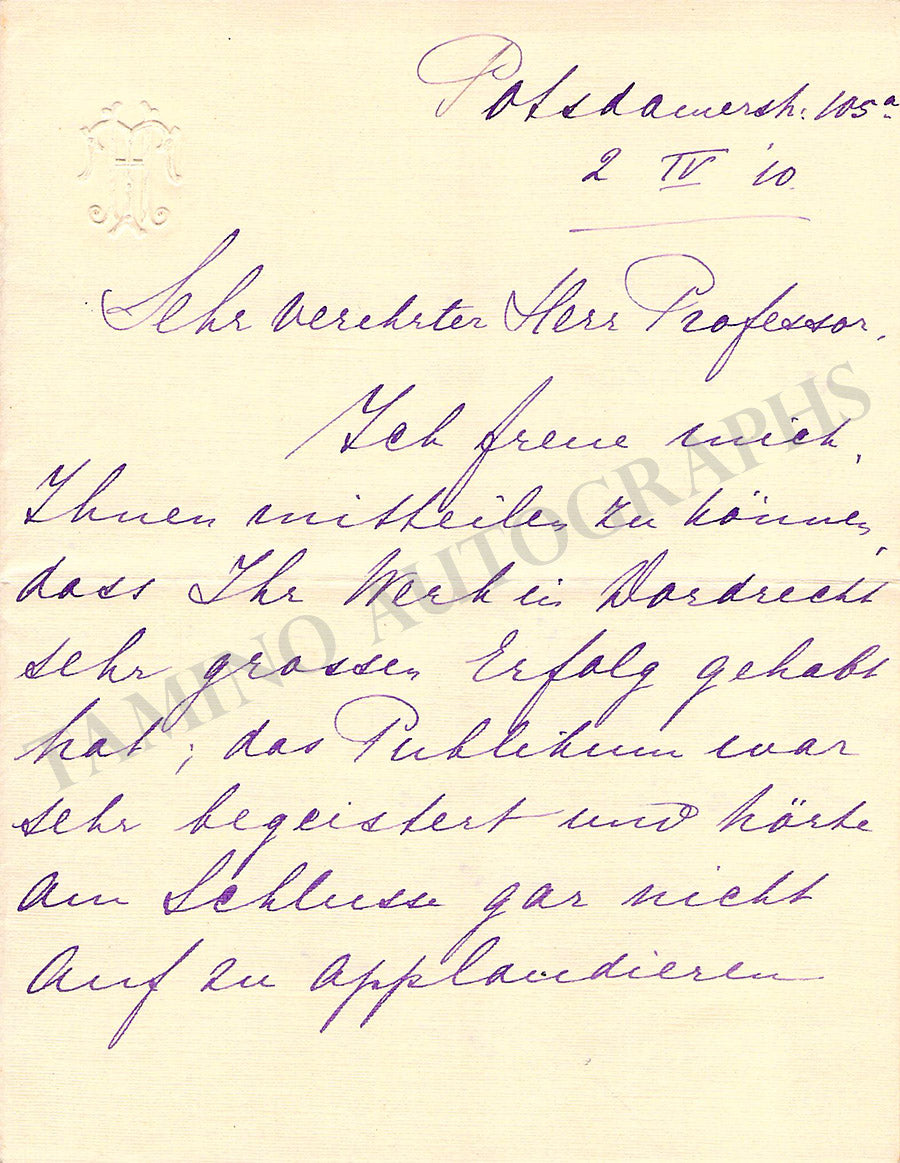 Potsdamerstr. 105a
2 IV '10.
Sehr verehrter Herr Professor,
Ich freue mich,
Ihnen mitteilen zu können,
dass Ihr Werk in Dordrecht
sehr grossen Erfolg gehabt
hat; das Publikum war
sehr begeistert und hörte
am Schlusse gar nicht
auf zu applaudieren
TAMINO AUTOGRAPHS